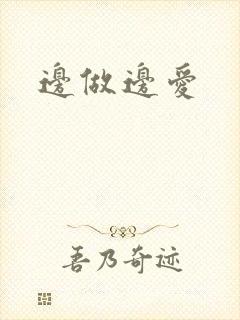 邊做邊愛
吾乃奇迹